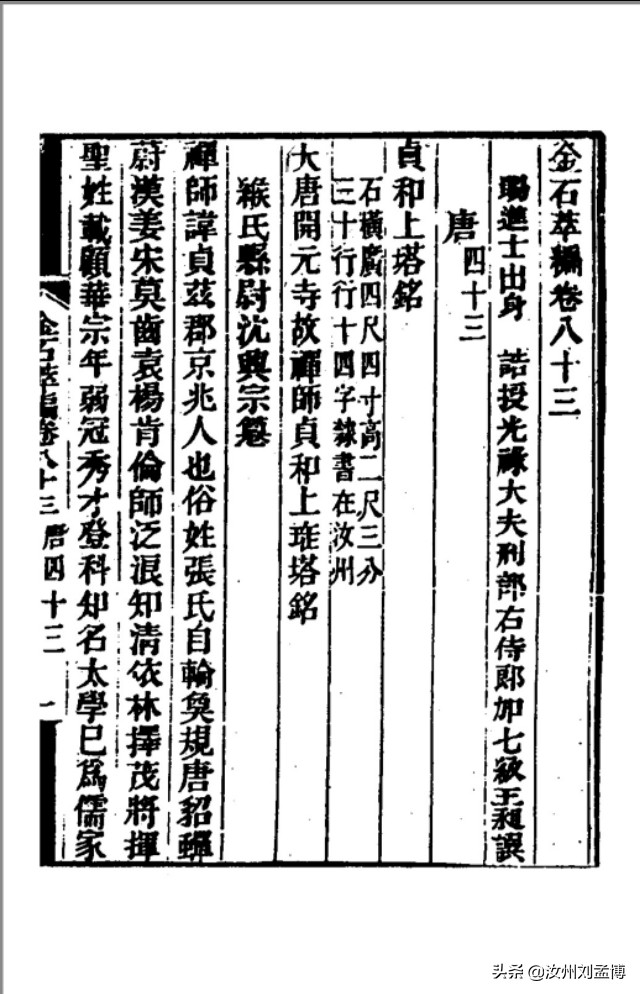 金石萃編卷八十三
賜進士出身 誥授光祿大夫刑部右侍郎加七級王昶譔
唐四十三
貞和上塔銘
石橫廣四尺四寸高二尺三分
三十行行十四字隸書在汝州
大唐開元寺故禪師貞和上塔銘
緱氏縣尉沈興宗纂
禪師諱貞茲郡京兆人也俗姓張氏自輪奐規唐貂蟬
蔚漢姜宋莫齒袁楊肯倫師泛浪知清依林擇茂將揮
聖姓載顧華宗年弱冠秀才登科知名太學已為儒家
金石萃編卷八十三 唐四十三 一
头条 @汝州刘孟博